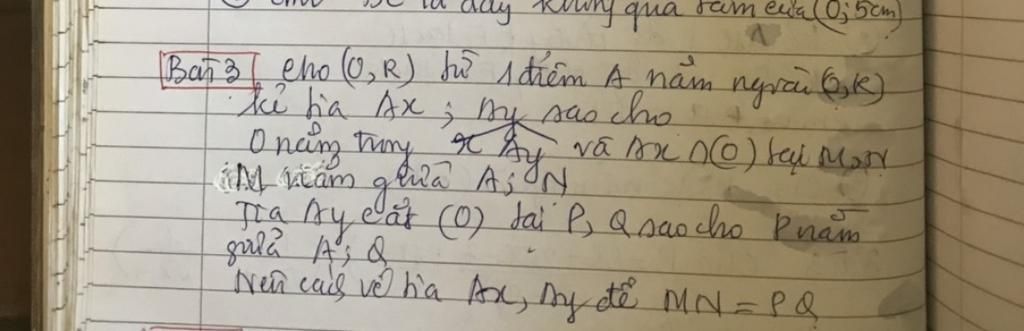 dây không qua tâm của (O; 5cm)
Bài 3 cho (O, R) từ 1 điểm A nằm ngoài (O, R)
kẻ tia Ax ; Ay sao cho
O nằm trong xAy và Ax ∩ (O) tại M, N
M nằm giữa A ; N
Tia Ay cắt (O) tại P, Q sao cho P nằm
giữa A ; Q
Nêu cách vẽ tia Ax, Ay để MN = PQ